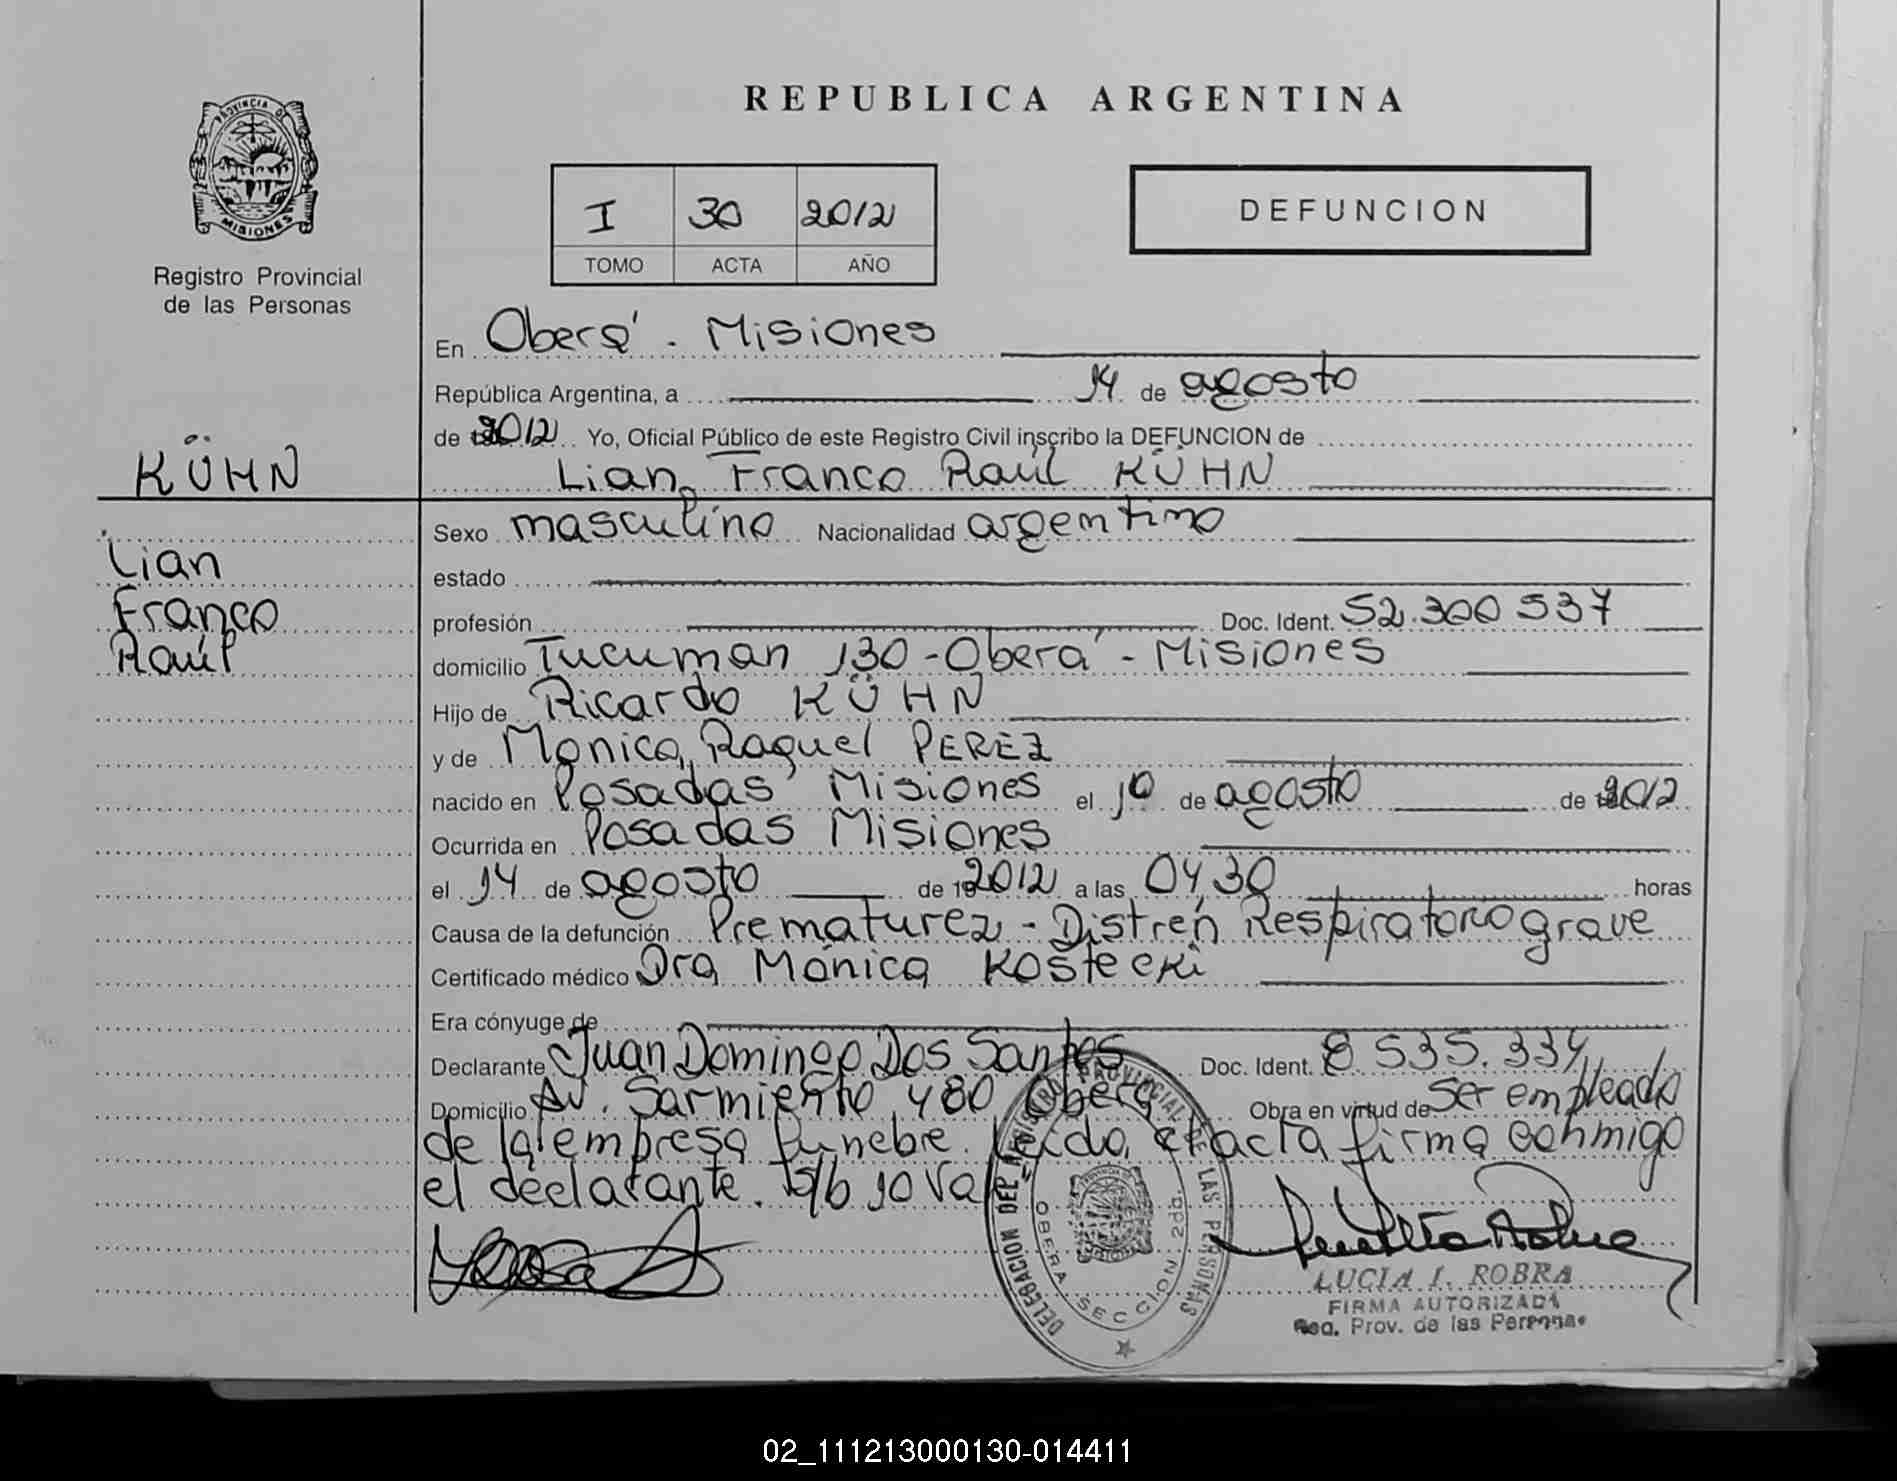 REPUBLICA ARGENTINA
PROVINCIA DE
MISIONES
Registro Provincial
de las Personas
I 30 2012
TOMO ACTA AÑO
DEFUNCION
En Oberá - Misiones
República Argentina, a 14 de agosto
de 2012 Yo, Oficial Público de este Registro Civil inscribo la DEFUNCION de
KÜHN
Lian Franco Raúl KÜHN
Lian
Franco
Raúl
Sexo masculino Nacionalidad argentino
estado
profesión Doc. Ident. 52.300 537
domicilio Tucuman 130 - Oberá - Misiones
Hijo de Ricardo KÜHN
y de Monica Raquel PEREZ
nacido en Posadas Misiones el 10 de agosto de 2012
Ocurrida en Posadas Misiones
el 14 de agosto de 2012 a las 04,30 horas
Causa de la defunción Prematurez - Distren Respiratorio grave
Certificado médico Dra Mónica Kostecki
Era cónyuge de
Declarante Juan Domingo Dos Santos Doc. Ident. 8 535.334
Domicilio Av. Sarmiento 480 Oberá Obra en virtud de ser empleado
de la empresa funebre. Leida el acta firma conmigo
el declarante. s/b 10 Va
DELEGACION DEL REGISTRO PROVINCIAL DE LAS PERSONAS
OBERA SECCION 2da.
LUCIA I. ROBRA
FIRMA AUTORIZADA
Reg. Prov. de las Personas
02_111213000130-014411